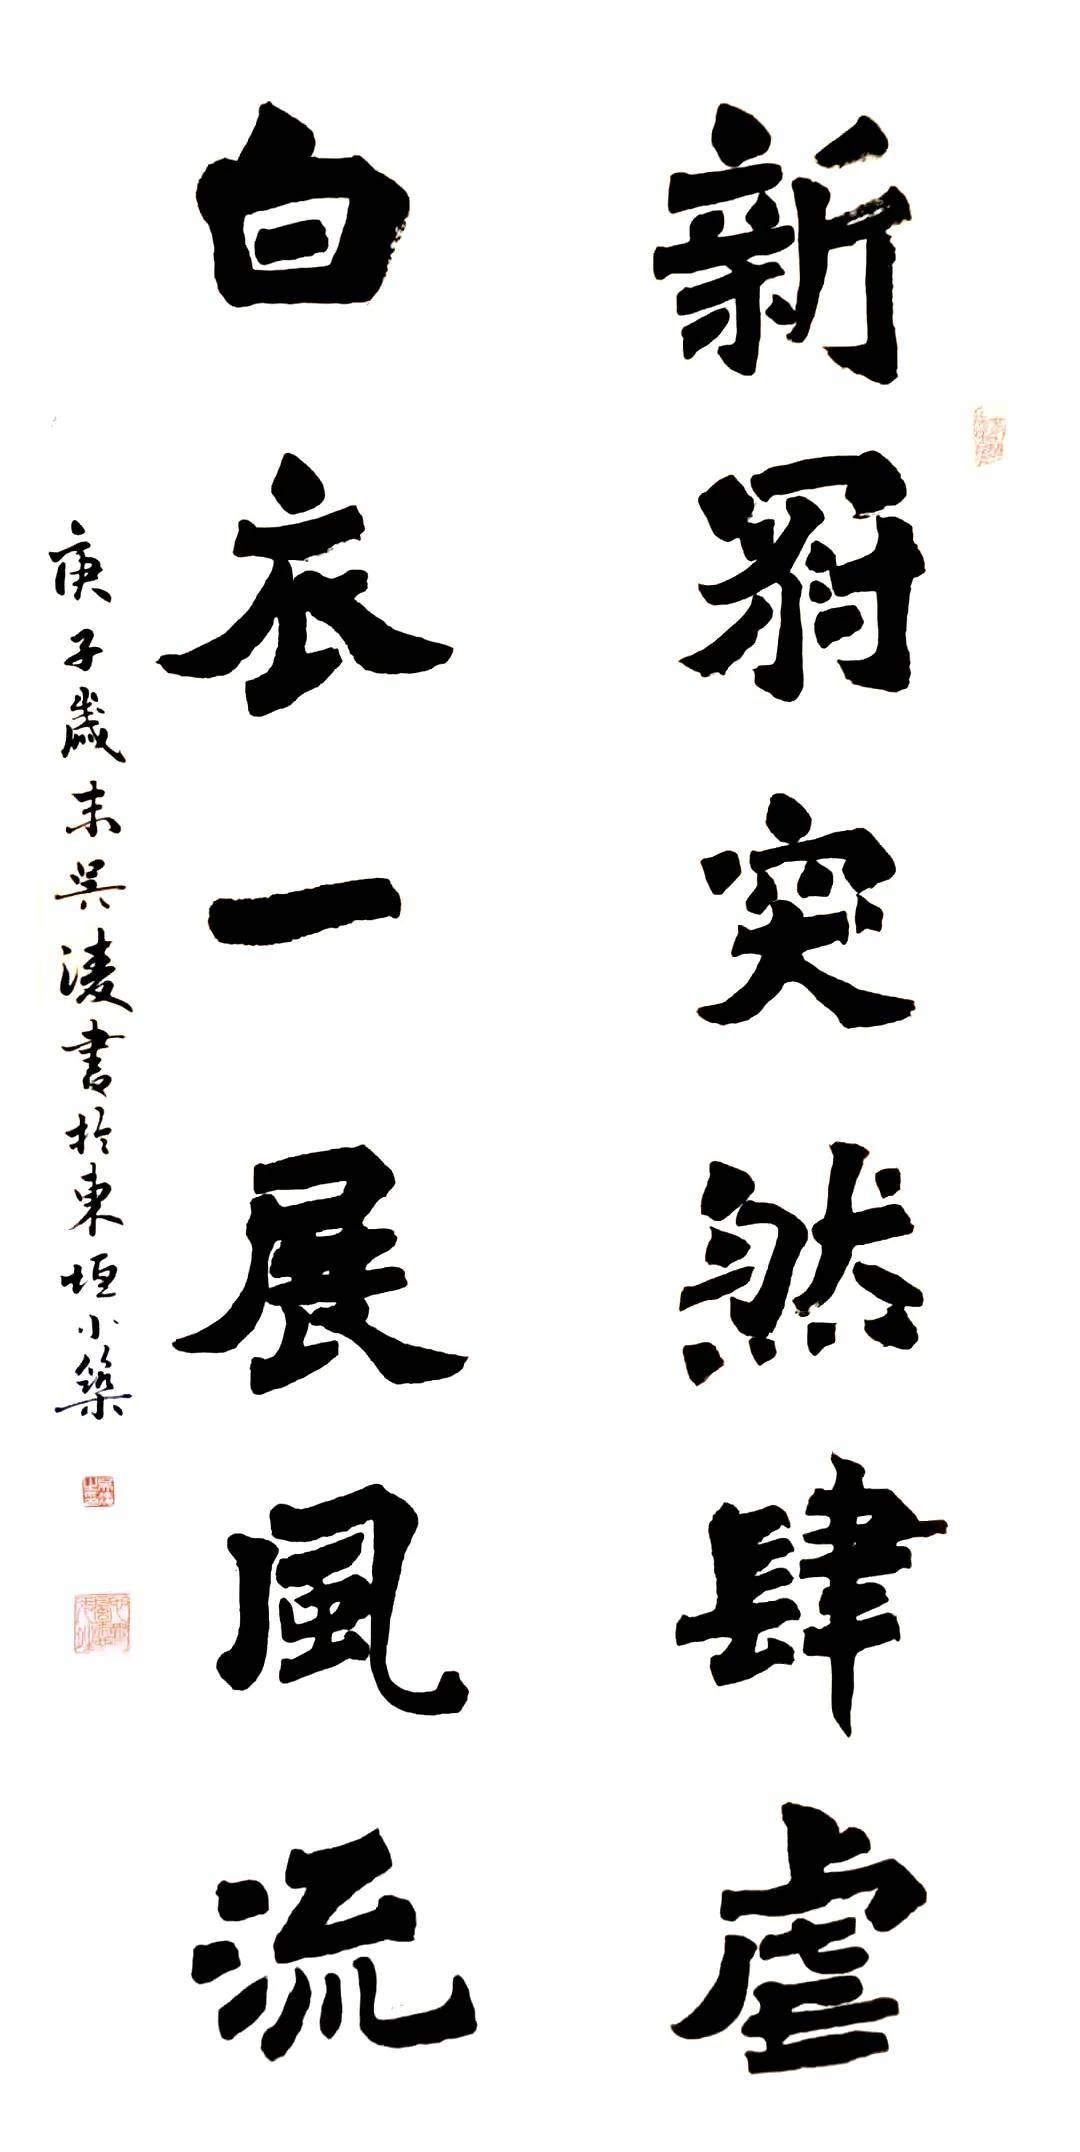 新冠突然肆虐
白衣一展風流
庚子歲末吴淩書於東垣小築